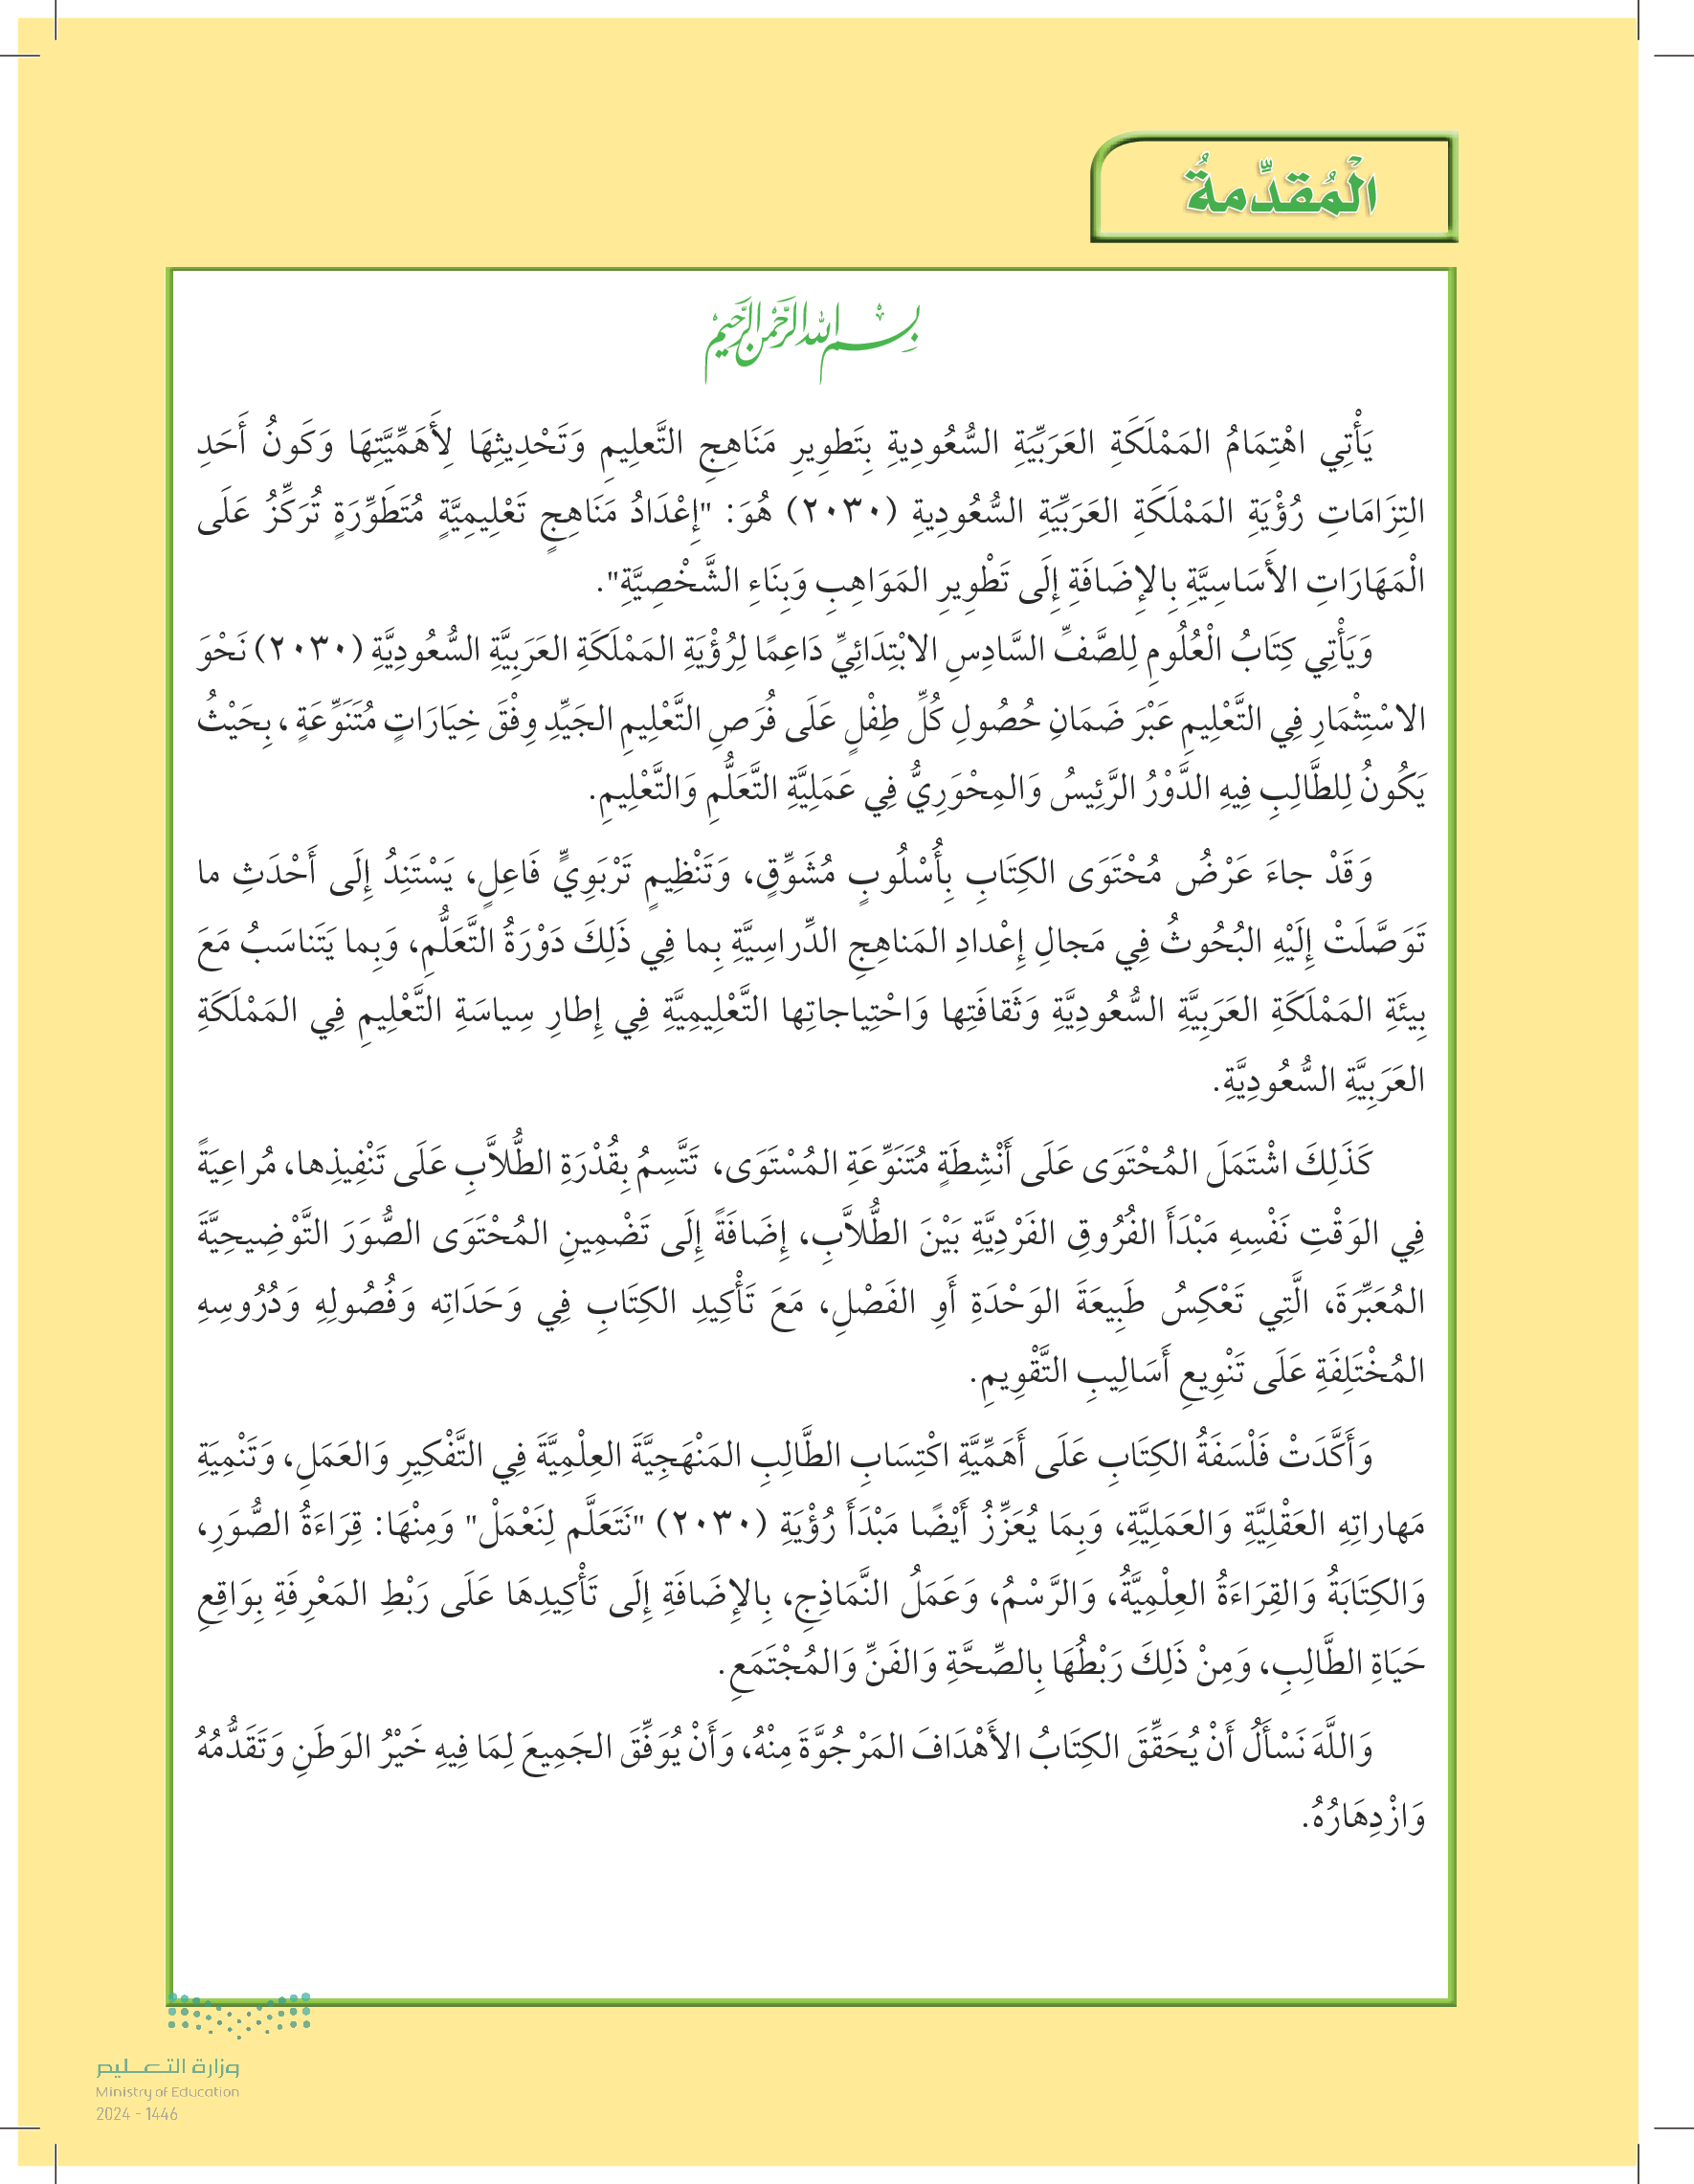 الْمُقدِّمةُ
بِسْمِ اللهِ الرَّحْمنِ الرَّحِيمِ
يَأْتِي اهْتِمَامُ المَمْلَكَةِ العَرَبِّيَةِ السُّعُودِيةِ بِتَطوِيرِ مَنَاهِجِ التَّعلِيمِ وَتَحْدِيثِهَا لِأَهَمِّيَّتِهَا وَكَونُ أَحَدِ
التِزَامَاتِ رُؤْيَةِ المَمْلَكَةِ العَرَبِّيَةِ السُّعُودِيةِ (٢٠٣٠) هُوَ: "إِعْدَادُ مَنَاهِجٍ تَعْلِيمِيَّةٍ مُتَطَوِّرَةٍ تُرَكِّزُ عَلَى
الْمَهَارَاتِ الأَسَاسِيَّةِ بِالإِضَافَةِ إِلَى تَطْوِيرِ المَوَاهِبِ وَبِنَاءِ الشَّخْصِيَّةِ".
وَيَأْتِي كِتَابُ الْعُلُومِ لِلصَّفِّ السَّادِسِ الابْتِدَائِيِّ دَاعِمًا لِرُؤْيَةِ المَمْلَكَةِ العَرَبِيَّةِ السُّعُودِيَّةِ (٢٠٣٠) نَحْوَ
الاسْتِثْمَارِ فِي التَّعْلِيمِ عَبْرَ ضَمَانِ حُصُولِ كُلِّ طِفْلٍ عَلَى فُرَصِ التَّعْلِيمِ الجَيِّدِ وِفْقَ خِيَارَاتٍ مُتَنَوِّعَةٍ، بِحَيْثُ
يَكُونُ لِلطَّالِبِ فِيهِ الدَّوْرُ الرَّئِيسُ وَالمِحْوَرِيُّ فِي عَمَلِيَّةِ التَّعَلُّمِ وَالتَّعْلِيمِ.
وَقَدْ جاءَ عَرْضُ مُحْتَوَى الكِتَابِ بِأُسْلُوبٍ مُشَوِّقٍ، وَتَنْظِيمٍ تَرْبَوِيٍّ فَاعِلٍ، يَسْتَنِدُ إِلَى أَحْدَثِ ما
تَوَصَّلَتْ إِلَيْهِ البُحُوثُ فِي مَجالِ إِعْدادِ المَناهِجِ الدِّراسِيَّةِ بِما فِي ذَلِكَ دَوْرَةُ التَّعَلُّمِ، وَبِما يَتَناسَبُ مَعَ
بِيئَةِ المَمْلَكَةِ العَرَبِيَّةِ السُّعُودِيَّةِ وَثَقافَتِها وَاحْتِياجاتِها التَّعْلِيمِيَّةِ فِي إِطارِ سِياسَةِ التَّعْلِيمِ فِي المَمْلَكَةِ
العَرَبِيَّةِ السُّعُودِيَّةِ.
كَذَلِكَ اشْتَمَلَ المُحْتَوَى عَلَى أَنْشِطَةٍ مُتَنَوِّعَةِ المُسْتَوَى، تَتَّسِمُ بِقُدْرَةِ الطُّلاَّبِ عَلَى تَنْفِيذِها، مُراعِيَةً
فِي الوَقْتِ نَفْسِهِ مَبْدَأَ الفُرُوقِ الفَرْدِيَّةِ بَيْنَ الطُّلاَّبِ، إِضَافَةً إِلَى تَضْمِينِ المُحْتَوَى الصُّوَرَ التَّوْضِيحِيَّةَ
المُعَبِّرَةَ، الَّتِي تَعْكِسُ طَبِيعَةَ الوَحْدَةِ أَوِ الفَصْلِ، مَعَ تَأْكِيدِ الكِتَابِ فِي وَحَدَاتِه وَفُصُولِهِ وَدُرُوسِهِ
المُخْتَلِفَةِ عَلَى تَنْوِيعِ أَسَالِيبِ التَّقْوِيمِ.
وَأَكَّدَتْ فَلْسَفَةُ الكِتَابِ عَلَى أَهَمِّيَّةِ اكْتِسَابِ الطَّالِبِ المَنْهَجِيَّةَ العِلْمِيَّةَ فِي التَّفْكِيرِ وَالعَمَلِ، وَتَنْمِيَةِ
مَهاراتِهِ العَقْلِيَّةِ وَالعَمَلِيَّةِ، وَبِمَا يُعَزِّزُ أَيْضًا مَبْدَأَ رُؤْيَةِ (٢٠٣٠) "نَتَعَلَّم لِنَعْمَلْ" وَمِنْهَا: قِرَاءَةُ الصُّوَرِ،
وَالكِتَابَةُ وَالقِرَاءَةُ العِلْمِيَّةُ، وَالرَّسْمُ، وَعَمَلُ النَّمَاذِجِ، بِالإِضَافَةِ إِلَى تَأْكِيدِهَا عَلَى رَبْطِ المَعْرِفَةِ بِوَاقِعِ
حَيَاةِ الطَّالِبِ، وَمِنْ ذَلِكَ رَبْطُهَا بِالصِّحَّةِ وَالفَنِّ وَالمُجْتَمَعِ.
وَاللَّهَ نَسْأَلُ أَنْ يُحَقِّقَ الكِتَابُ الأَهْدَافَ المَرْجُوَّةَ مِنْهُ، وَأَنْ يُوَفِّقَ الجَمِيعَ لِمَا فِيهِ خَيْرُ الوَطَنِ وَتَقَدُّمُهُ
وَازْدِهَارُهُ.
وزارة التعليم
Ministry of Education
2024 - 1446